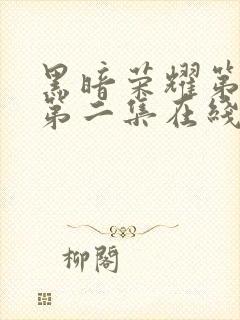 黑暗荣耀第
第二集在线
柳阁